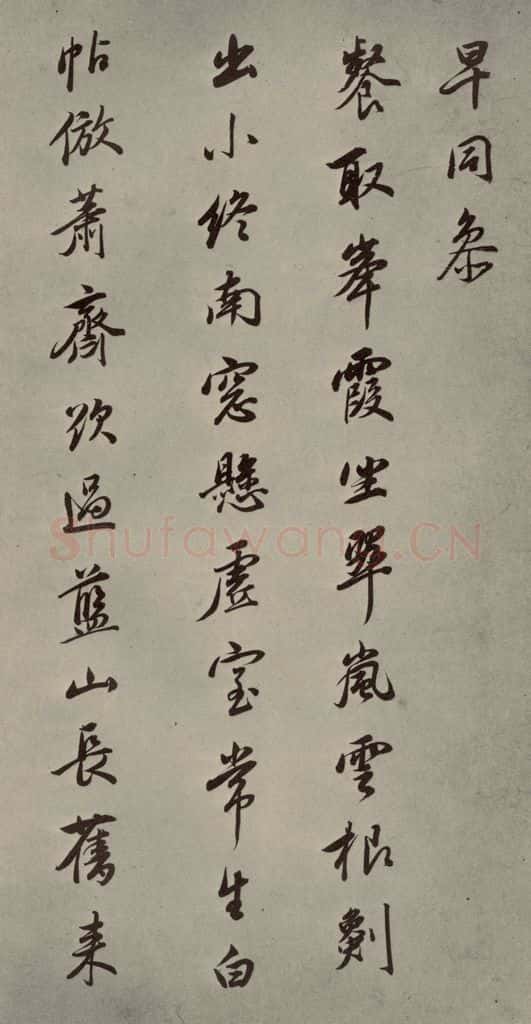 早同叅
餐取峯霞坐翠嵐雲根劖
出小終南窓懸虛室常生白
帖倣蕭齋欲過藍山長舊来
Shufawang.CN